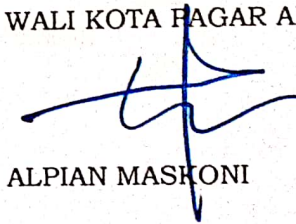 WALI KOTA PAGAR A
ALPIAN MASKONI